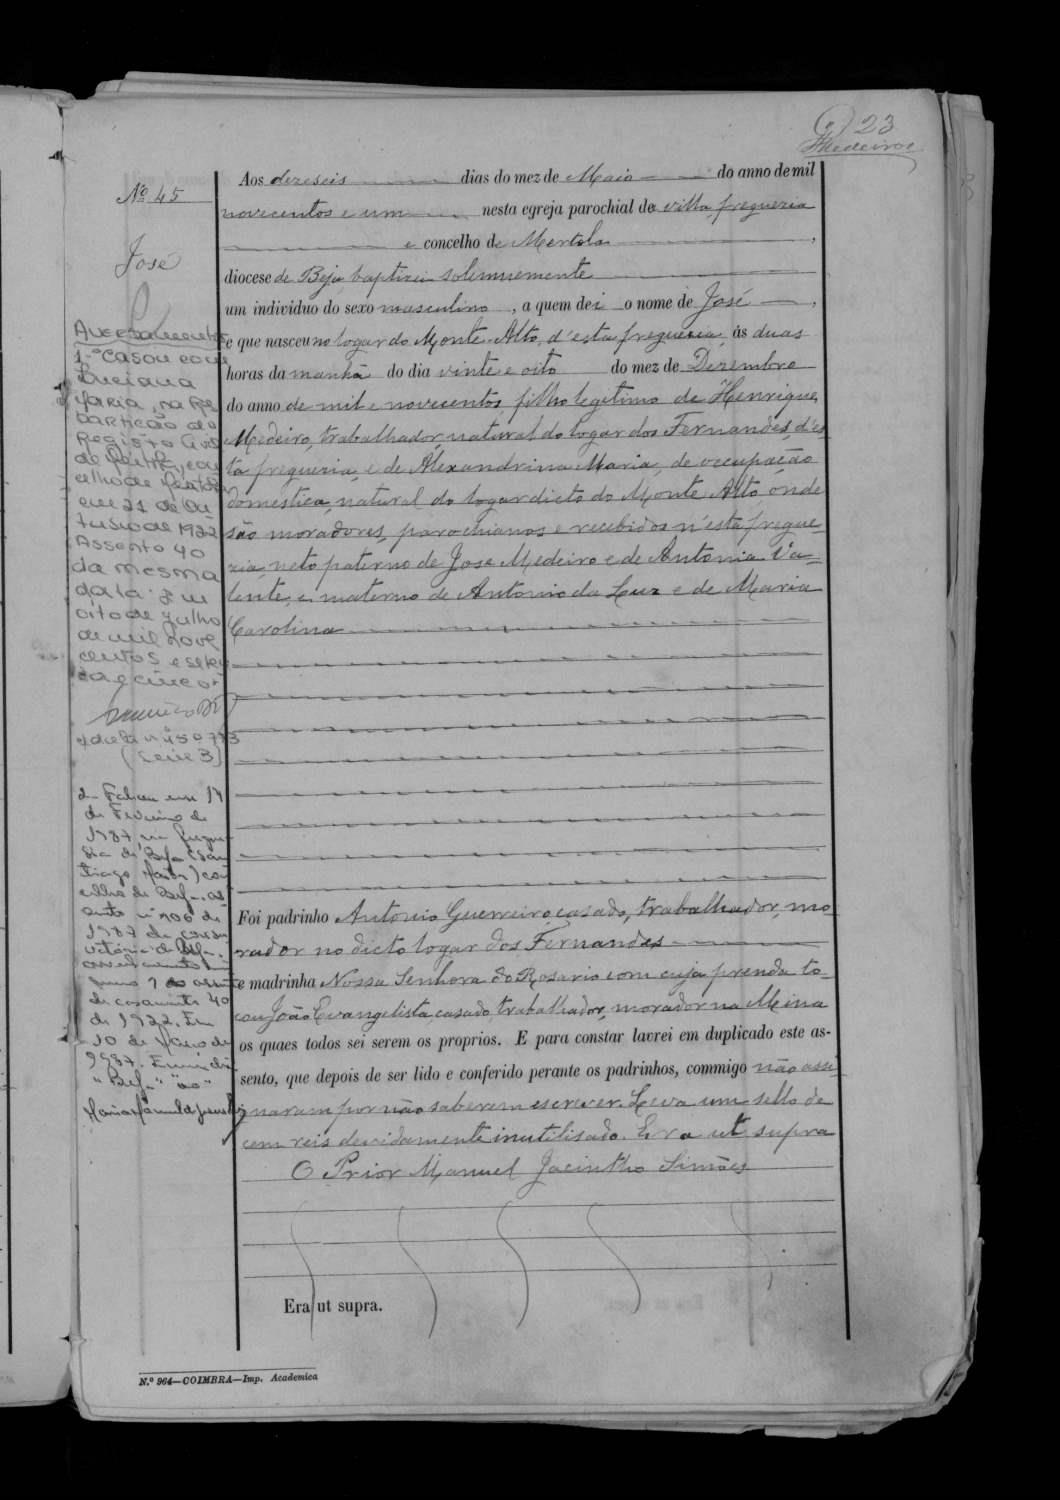 23
Medeiros
Nº 45
José
Averbamentos
1.º Casou com
Luciana
Maria, na Re
partição do
Registo Civil
de
elho de Mertola
em 21 de Ou
tubro de 1922
Assento 40
da mesma
data. Em
oito de Julho
de mil nove
centos e seten
ta e cinco.
(Série 3)
2- Faleceu em 14
de Fevereiro de
1987, na fregue
sia de Beja (San
tiago Maior) con
celho de Beja. as
sento nº 106 de
1987 da conser
vatória de Beja.
averbamento
numero 1 ao assento
de casamento 40
de 1922. Em
10 de Março de
1987.
Aos dezeseis dias do mez de Maio do anno de mil
novecentos e um nesta egreja parochial da villa, freguezia
e concelho de Mertola,
diocese de Beja baptizei solemnemente
um individuo do sexo masculino, a quem dei o nome de José,
e que nasceu no logar do Monte Alto, d'esta freguezia, ás duas
horas da manhã do dia vinte e oito do mez de Dezembro
do anno de mil e novecentos filho legitimo de Henrique
Medeiro, trabalhador, natural do logar dos Fernandes, d'es
ta freguezia, e de Alexandrina Maria, de occupação
domestica, natural do logar dicto do Monte Alto, onde
são moradores, parochianos e recebidos n'esta fregue-
zia, neto paterno de José Medeiro e de Antonia Va-
lente, e materno de Antonio da Luz e de Maria
Carolina
Foi padrinho Antonio Guerreiro, casado, trabalhador, mo-
rador no dicto logar dos Fernandes
e madrinha Nossa Senhora do Rosario com cuja prenda to-
cou João Evangelista, casado, trabalhador, morador na Mina
os quaes todos sei serem os proprios. E para constar lavrei em duplicado este as-
sento, que depois de ser lido e conferido perante os padrinhos, commigo não assi-
gnaram por não saberem escrever. Leva um sello de
cem reis devidamente inutilisado. Era ut supra
O Prior Manuel Jacintho Simões
Era ut supra.
N.º 964—COIMBRA—Imp. Academica